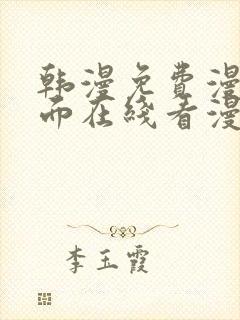 韩漫免费漫
而在线看漫
李玉霞